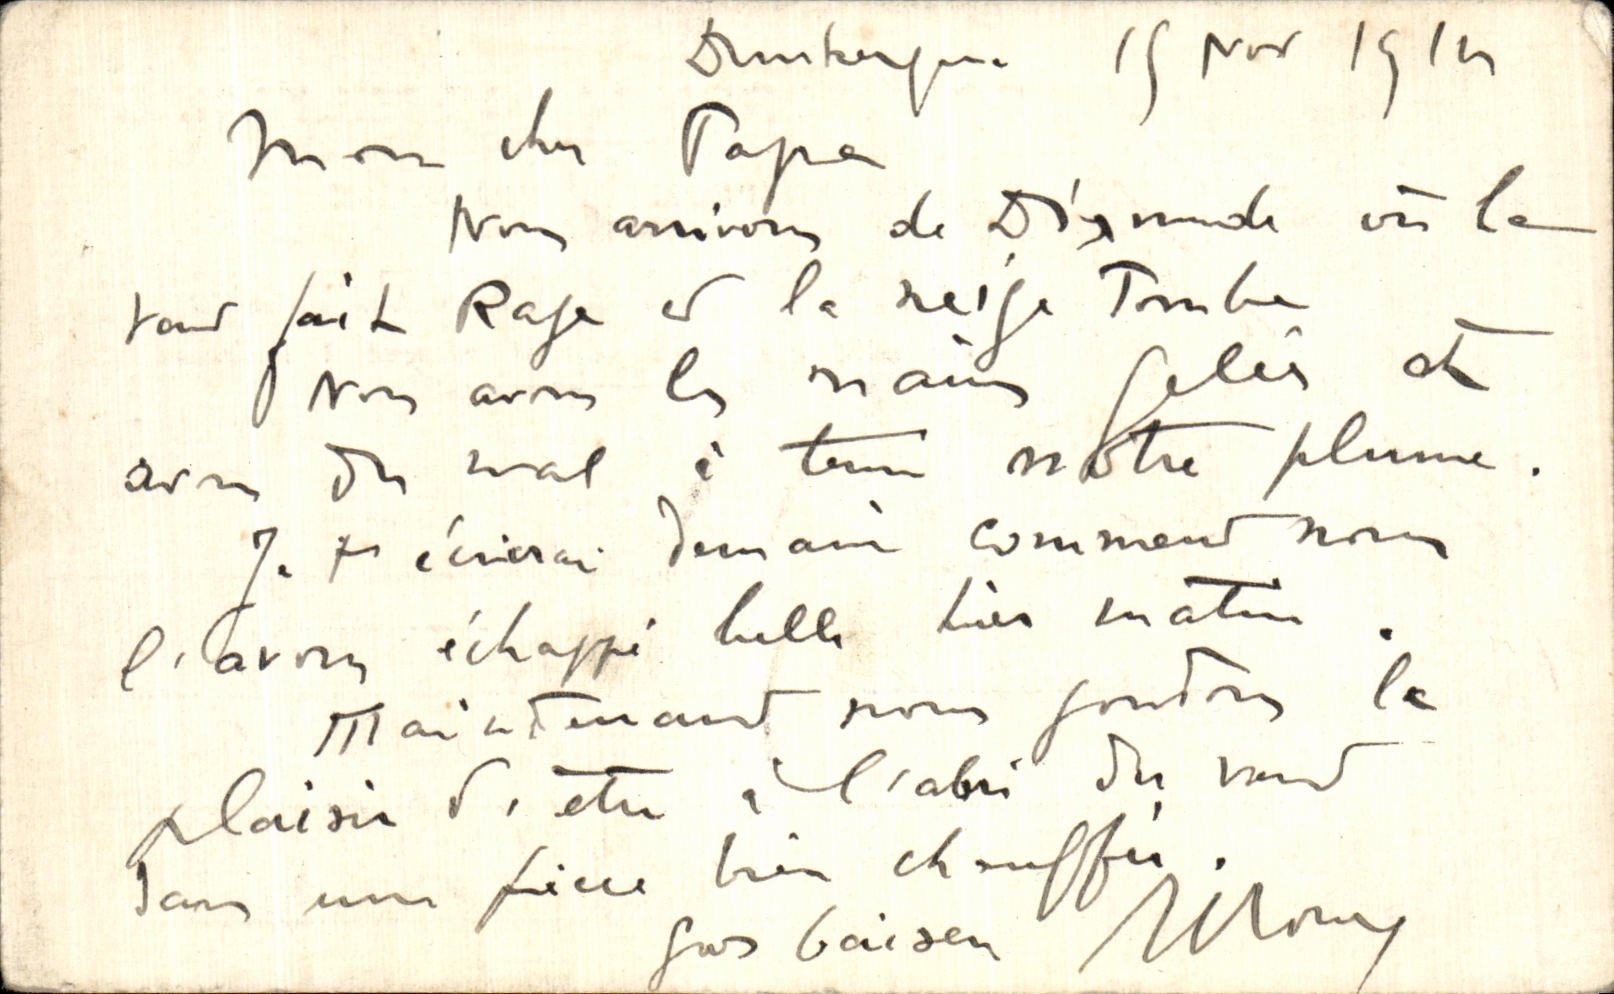 Dunkerque 15 Nov 1914
Mon cher Papa
Nous arrivons de Dixmude où le
vent fait Rage et la neige Tombe
Nous avons les mains gelées et
avons du mal à tenir notre plume.
Je t'écrirai demain comment nous
l'avons échappé belle hier matin.
Maintenant nous goutons le
plaisir d'être à l'abri du vent
dans une pièce bien chauffée.
gros baisers